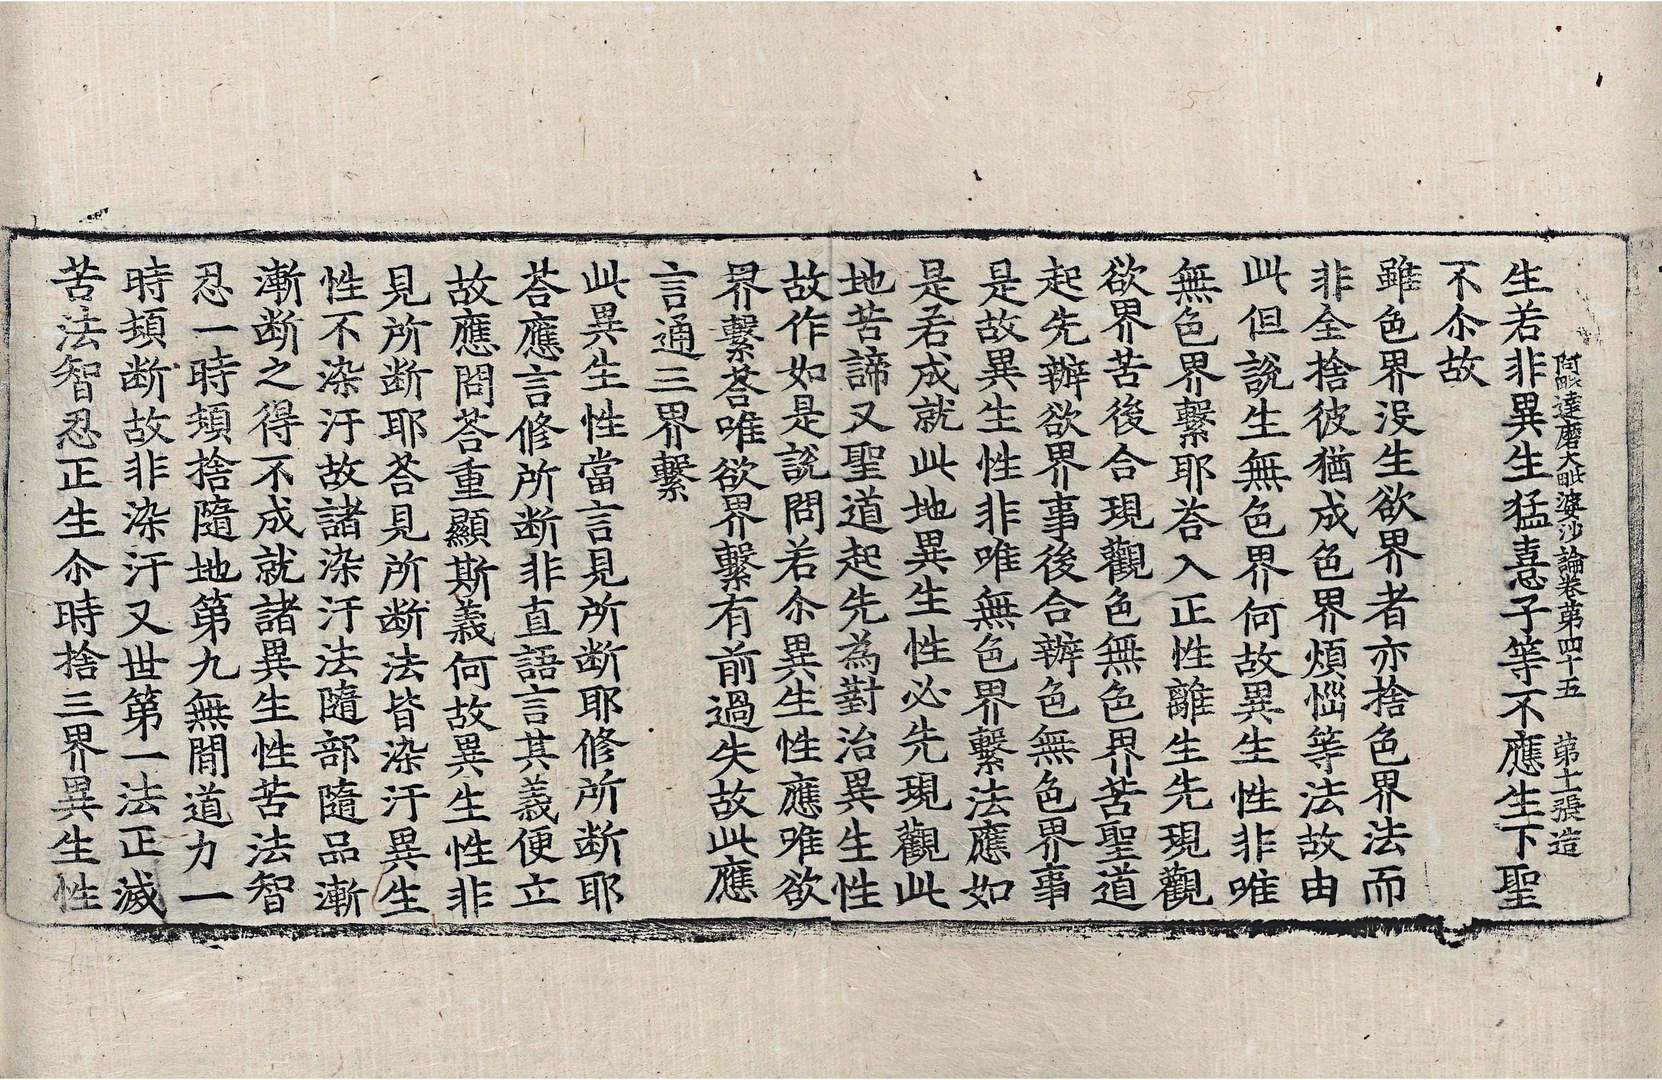 阿毗達磨大毗婆沙論卷第四十五 第十二張 造
生若非異生猛憙子等不應生下聖
不尒故
雖色界沒生欲界者亦捨色界法而
非全捨彼猶成色界煩惱等法故由
此但說生無色界何故異生性非唯
無色界繫耶荅入正性離生先現觀
欲界苦後合現觀色無色界苦聖道
起先辦欲界事後合辦色無色界事
是故異生性非唯無色界繫法應如
是若成就此地異生性必先現觀此
地苦諦又聖道起先為對治異生性
故作如是說問若尒異生性應唯欲
界繫荅唯欲界繫有前過失故此應
言通三界繫
此異生性當言見所断耶修所断耶
荅應言修所断非直語言其義便立
故應問荅重顯斯義何故異生性非
見所断耶荅見所断法皆染汙異生
性不染汙故諸染汙法隨部隨品漸
漸断之得不成就諸異生性苦法智
忍一時頓捨隨地第九無間道力一
時頓断故非染汙又世第一法正滅
苦法智忍正生尒時捨三界異生性